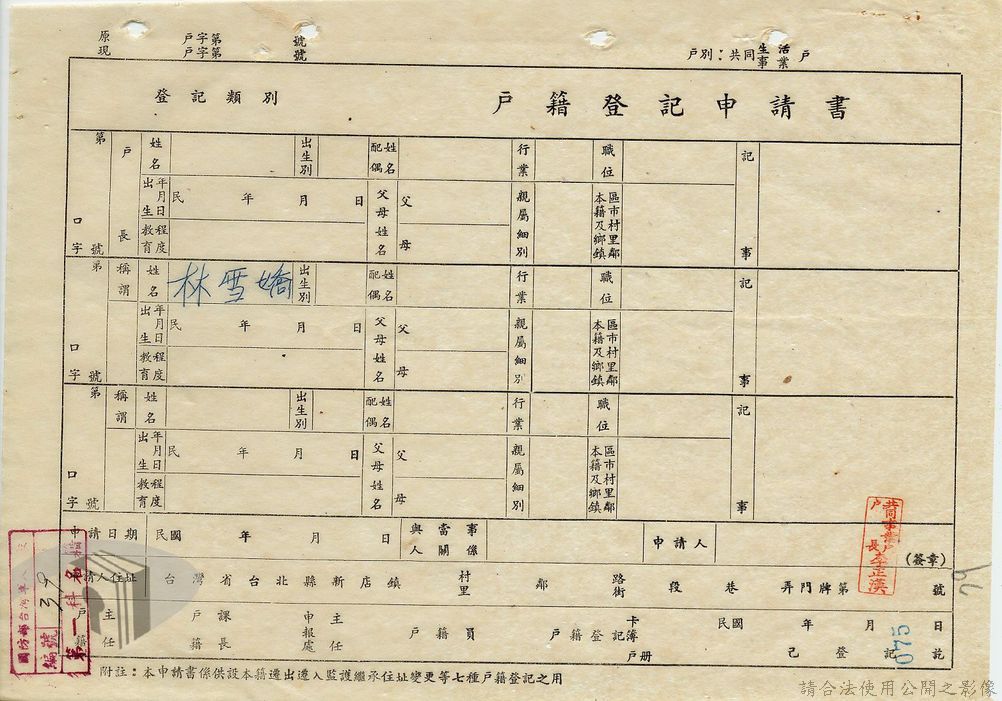 原 戶字第 號
現 戶字第 號
戶別：共同生活事業戶
登記類別
戶籍登記申請書
第 口字 號
戶長
姓名
出生別
配偶姓名
行業
職位
記事
出生年月日
民 年 月 日
父母姓名
父
母
親屬細別
本籍及鄉鎮區市村里鄰
教育程度
第 口字 號
稱謂
姓名
林雪嬌
出生別
配偶姓名
行業
職位
記事
出生年月日
民 年 月 日
父母姓名
父
母
親屬細別
本籍及鄉鎮區市村里鄰
教育程度
第 口字 號
稱謂
姓名
出生別
配偶姓名
行業
職位
記事
出生年月日
民 年 月 日
父母姓名
父
母
親屬細別
本籍及鄉鎮區市村里鄰
教育程度
申請日期 民國 年 月 日
與當事人關係
申請人
(簽章)
共同事業戶
戶長李正漢
請人住址 台灣省台北縣新店鎮 村里 鄰 路街 段 巷 弄門牌第 號
戶籍主任
戶籍課長
申報處主任
戶籍員
戶籍登記卡簿戶冊
民國 年 月 日
已登記訖
075
編號
39
第一科
附註：本申請書係供設本籍遷出遷入監護繼承住址變更等七種戶籍登記之用
請合法使用公開之影像